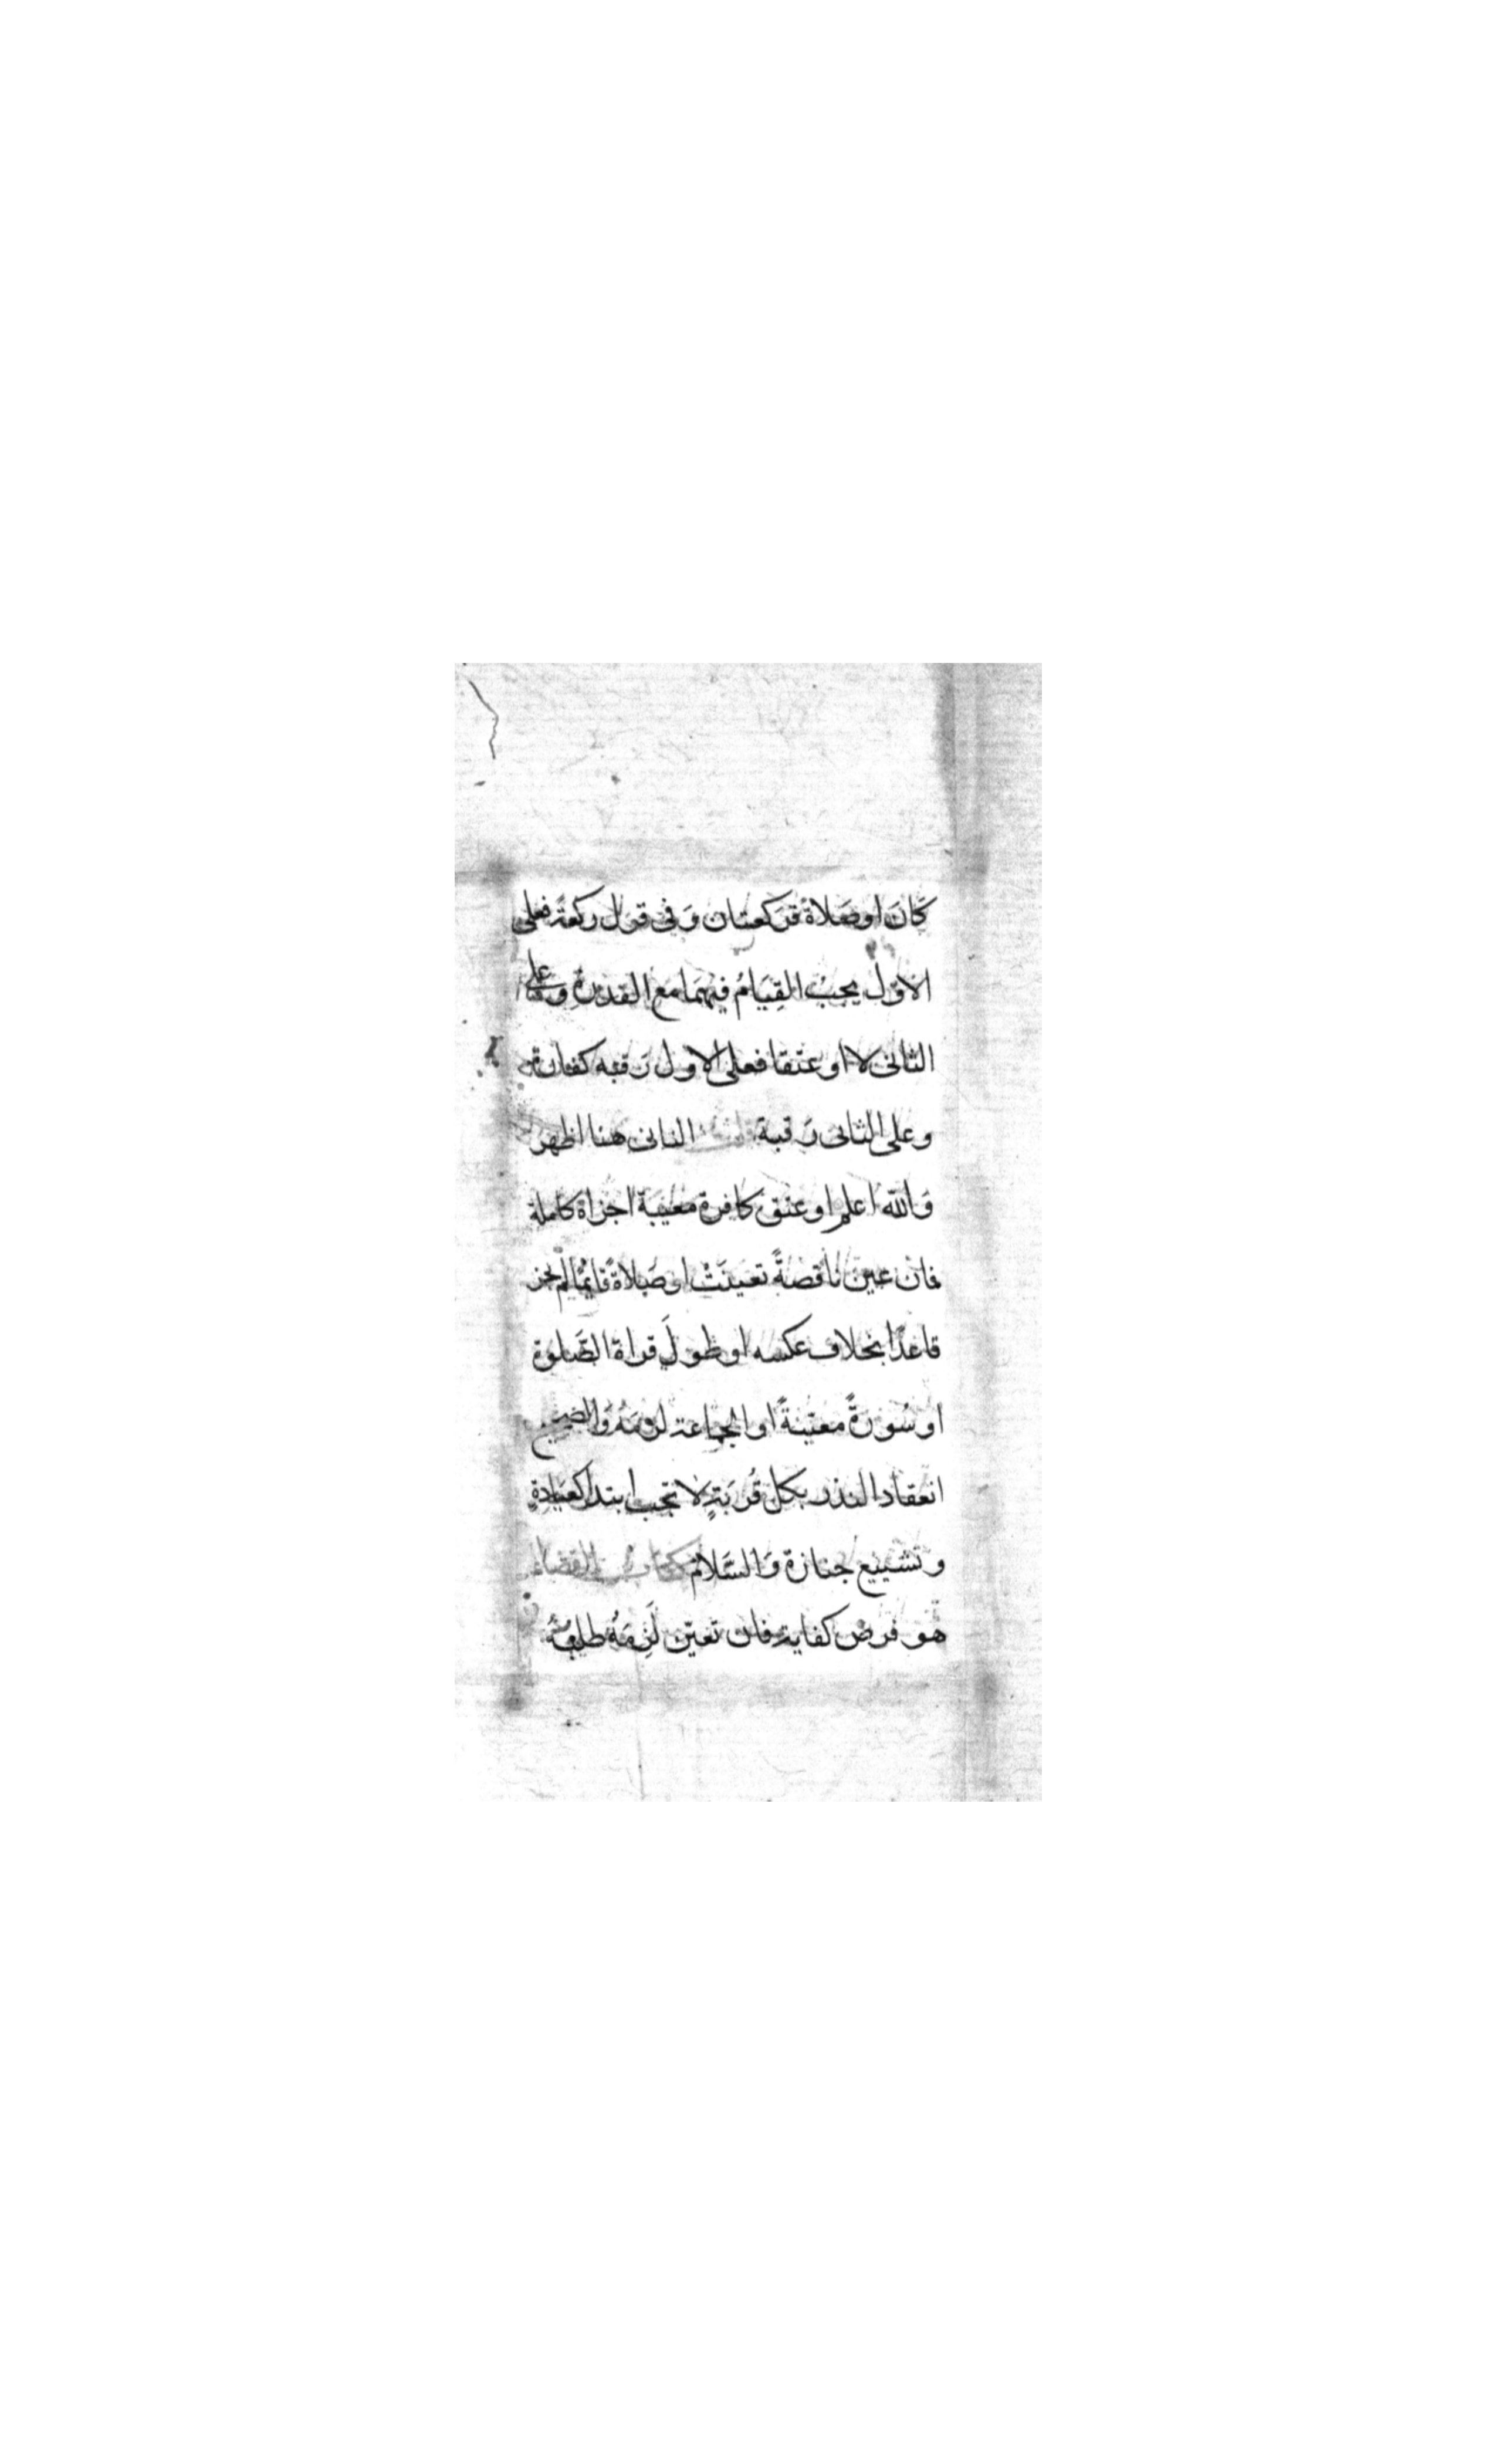 كَانَ او صَلاة فرَكعتان وَفى قول ركعة فعلى
الاوّل يجبُ القِيَامُ فيهمَا مع القدرة وعلى
الثانى لا او عتقا فعلى الاول رَقبه كفارة
وعلى الثانى رَقبة قلت الثانى هنا اظهر
وَالله اعلم او عتق كافرة معيبة اجزاه كاملة
فان عين ناقصةً تعينَتْ او صَلاةً قايمًا لم يجز
قاعدًا بخلاف عكسه او طولَ قراة الصَّلوة
او سُورَةً معيّنةً او الجماعة لزمَهُ وَالصحيح
انعقاد النذر بكل قُربَةٍ لا تجب ابتدا كعيَادةٍ
وتشييع جنازة وَالسَّلام كتاب القضاء
هو فرض كفاية فان تعيّن لَزِمَهُ طلبُهُ